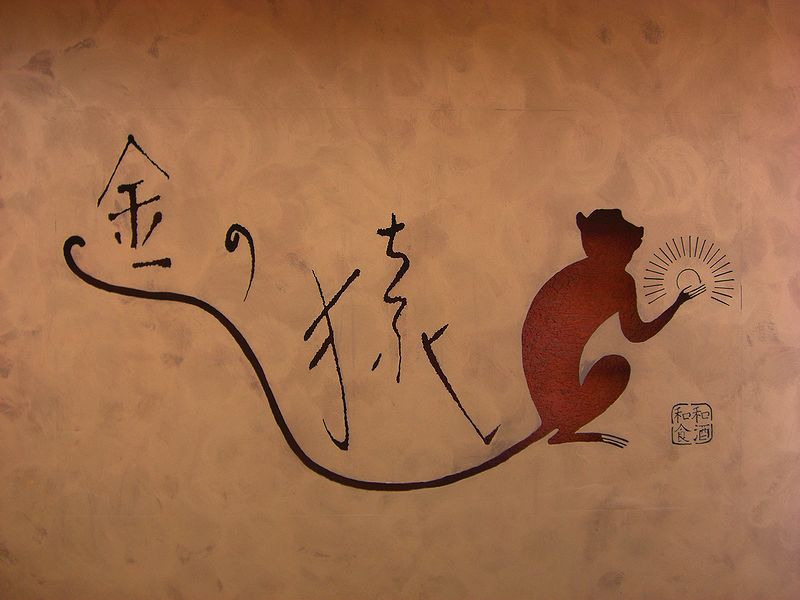 金の猿
和酒
和食